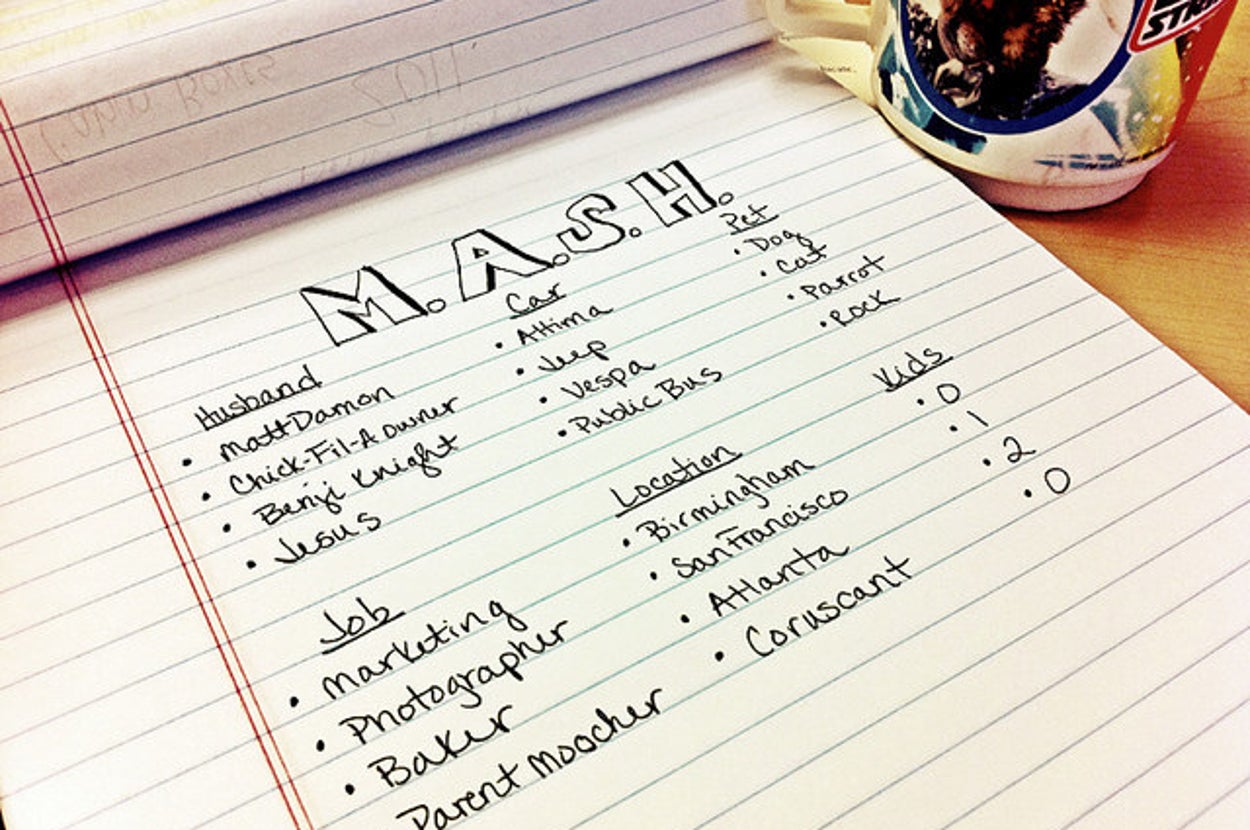 M.A.S.H.
Husband
• Matt Damon
• Chick-Fil-A owner
• Benji Knight
• Jesus
Car
• Altima
• Jeep
• Vespa
• Public Bus
Pet
• Dog
• Cat
• Parrot
• Rock
Job
• Marketing
• Photographer
• Baker
Parent Moocher
Location
• Birmingham
• San Francisco
• Atlanta
• Coruscant
Kids
• 0
• 1
• 2
• 0
2011